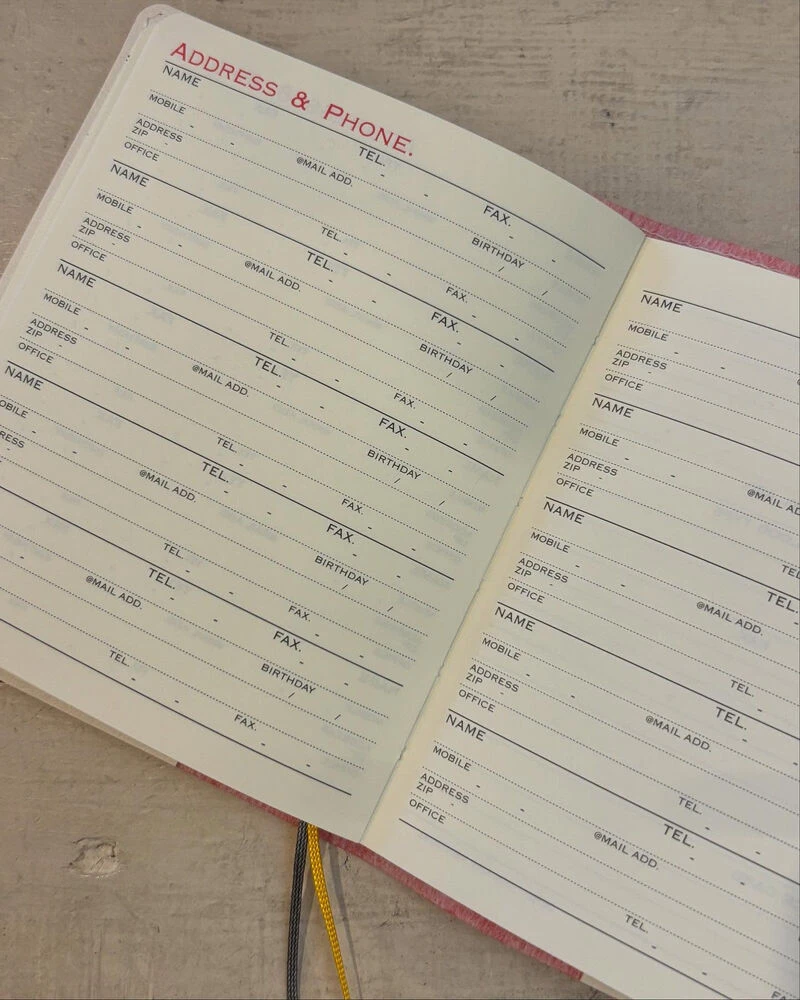 ADDRESS & PHONE.
NAME TEL. - - FAX. - -
MOBILE - - @MAIL ADD. BIRTHDAY / /
ADDRESS
ZIP -
OFFICE TEL. - - FAX. - -
NAME TEL. - - FAX. - -
MOBILE - - @MAIL ADD. BIRTHDAY / /
ADDRESS
ZIP -
OFFICE TEL. - - FAX. - -
NAME TEL. - - FAX. - -
MOBILE - - @MAIL ADD. BIRTHDAY / /
ADDRESS
ZIP -
OFFICE TEL. - - FAX. - -
NAME TEL. - - FAX. - -
OBILE - - @MAIL ADD. BIRTHDAY / /
RESS
TEL. - - FAX. - -
TEL. - - FAX. - -
- @MAIL ADD. BIRTHDAY / /
TEL. - - FAX. - -
NAME
MOBILE - - @
ADDRESS
ZIP -
OFFICE
NAME
MOBILE - - @MAIL AD
ADDRESS
ZIP -
OFFICE TEL
NAME TEL.
MOBILE - - @MAIL ADD.
ADDRESS
ZIP -
OFFICE TEL. -
NAME TEL. -
MOBILE - - @MAIL ADD.
ADDRESS
ZIP -
OFFICE TEL. - -
NAME TEL. - -
MOBILE - - @MAIL ADD.
ADDRESS
ZIP -
OFFICE TEL. - - FA